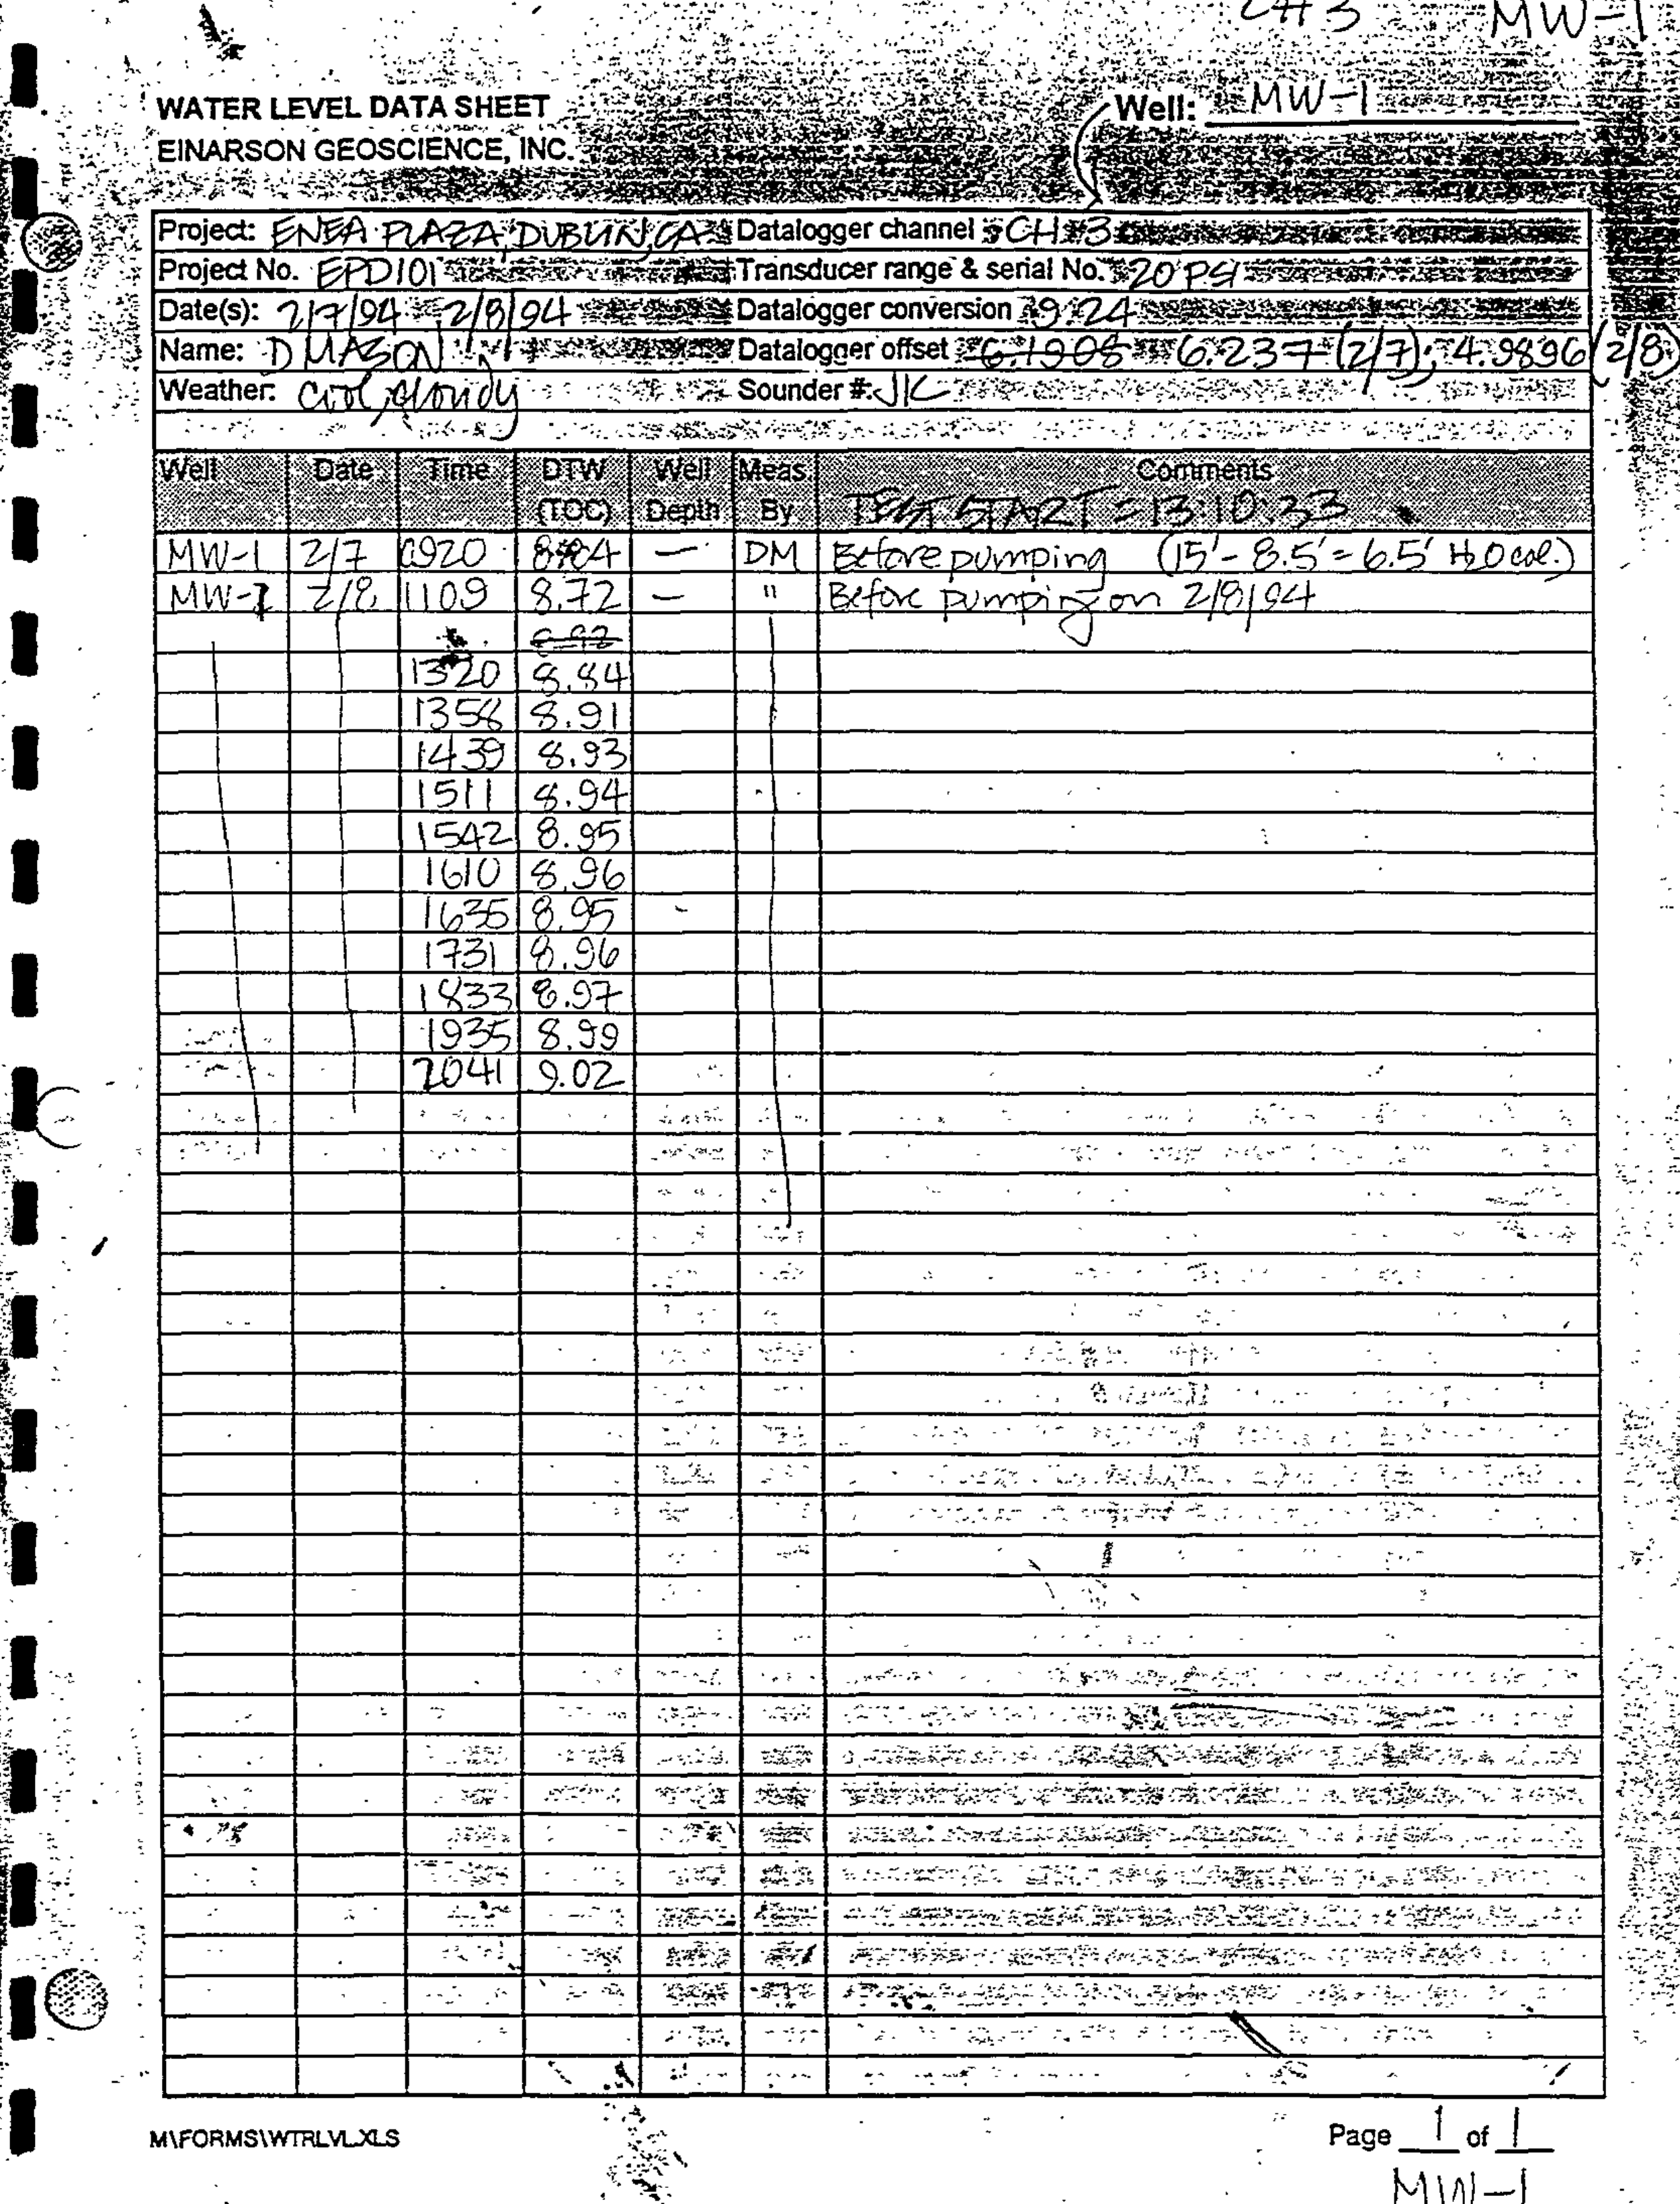 CH3 MW-1
WATER LEVEL DATA SHEET
Well: MW-1
EINARSON GEOSCIENCE, INC.
Project: ENEA PLAZA, DUBLIN, CA Datalogger channel CH#3
Project No. EPD101 Transducer range & serial No. 20 PSI
Date(s): 2/7/94 - 2/8/94 Datalogger conversion 9.24
Name: D MASON Datalogger offset 6.1908 6.237 (2/7); 4.9896 (2/8)
Weather: cool, cloudy Sounder #: JK
Well Date Time DTW (TOC) Well Depth Meas. By Comments
TEST START = 13:10:33
MW-1 2/7 0920 — DM Before pumping (15' - 8.5' = 6.5' H2O col.)
MW-1 2/8 1109 8.72 — " Before pumping on 2/8/94
1320 8.84
1358 8.91
1439 8.93
1511 8.94
1542 8.95
1610 8.96
1635 8.95
1731 8.96
1833 8.97
1935 8.99
2041 9.02
M\FORMS\WTRLVL.XLS
Page 1 of 1
MW-1